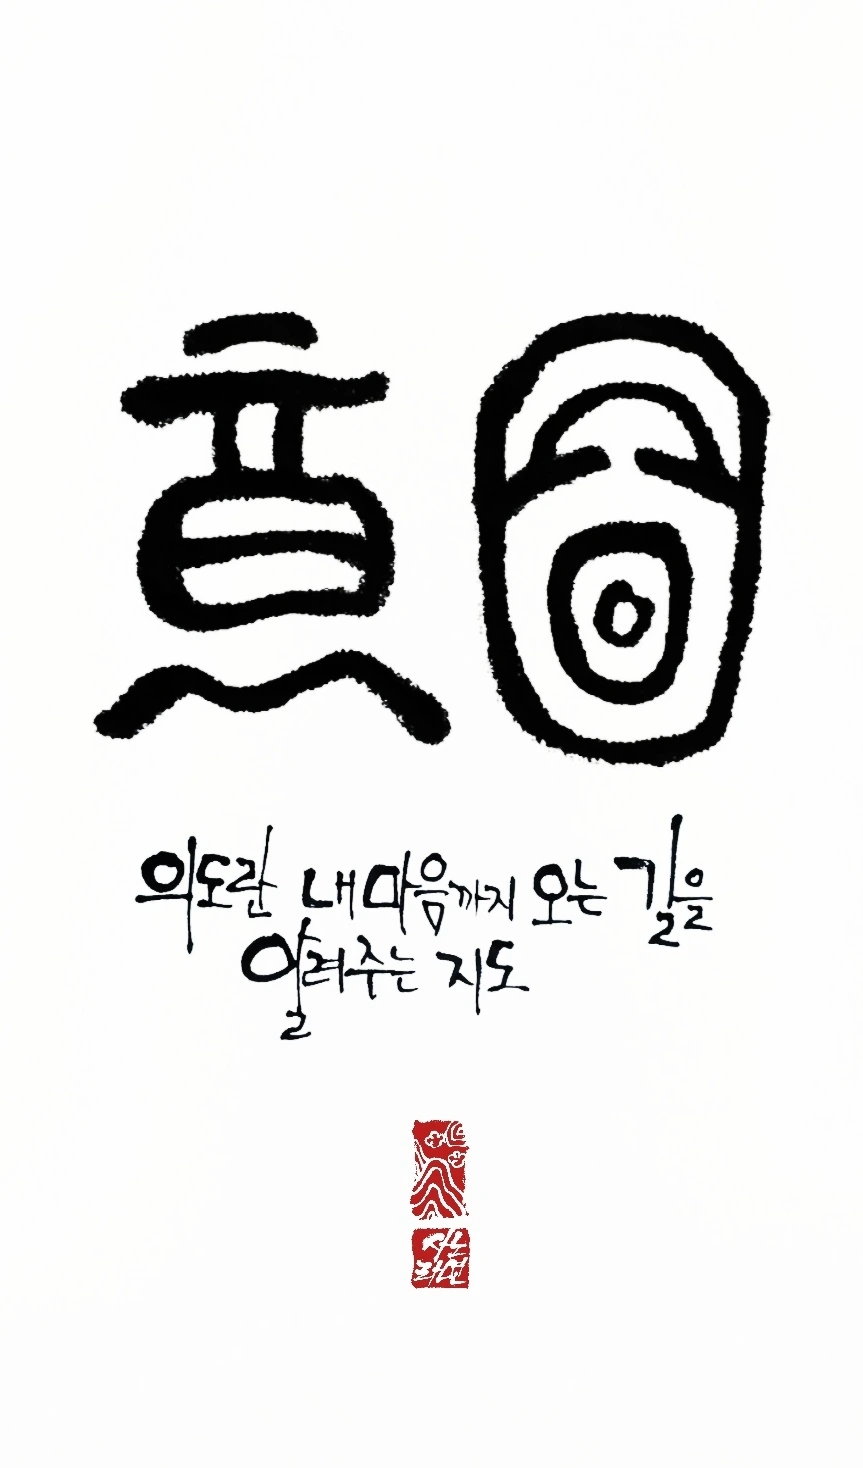 意圖
의도란 내 마음까지 오는 길을
알려주는 지도